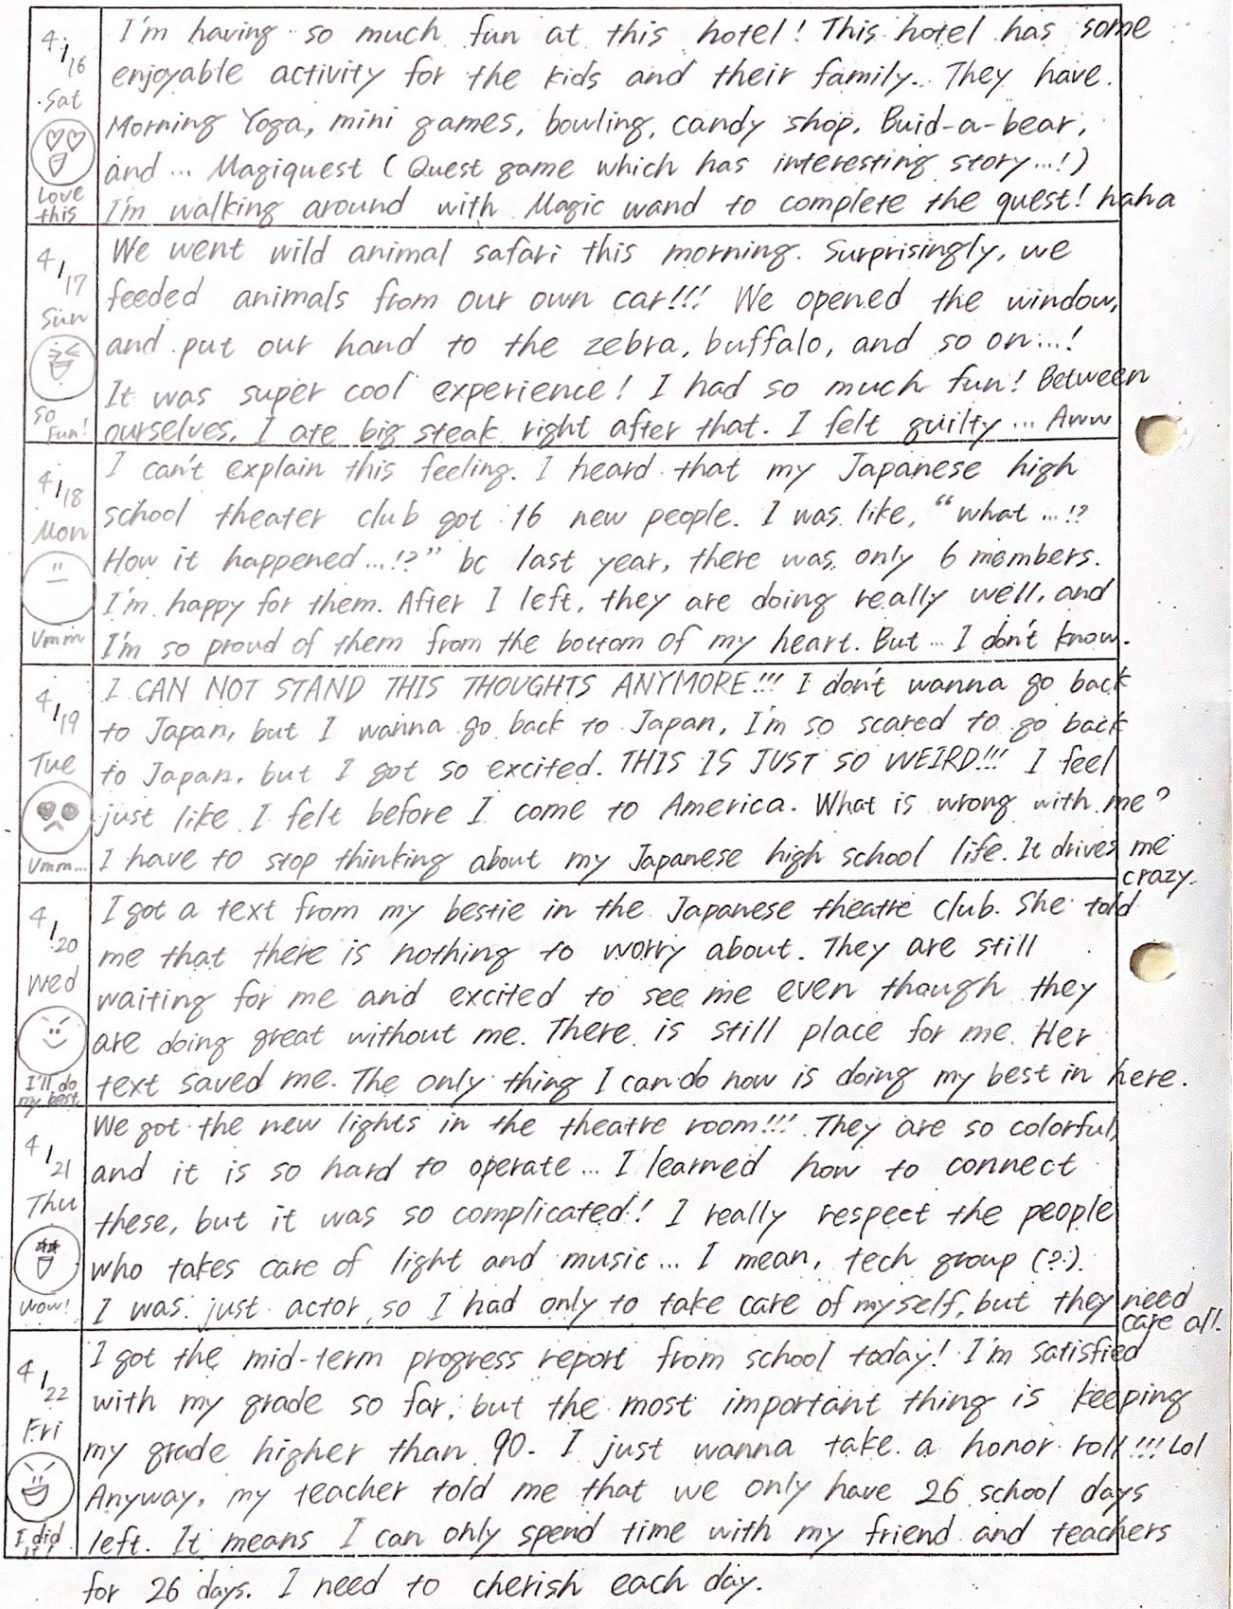 4/16
Sat
Love
this
I'm having so much fun at this hotel! This hotel has some
enjoyable activity for the kids and their family. They have
Morning Yoga, mini games, bowling, candy shop, Buid-a-bear,
and... Magiquest (Quest game which has interesting story...!)
I'm walking around with Magic wand to complete the quest! haha
4/17
Sun
so
Fun!
We went wild animal safari this morning. Surprisingly, we
feeded animals from our own car!!! We opened the window,
and put our hand to the zebra, buffalo, and so on...!
It was super cool experience! I had so much fun! Between
ourselves, I ate big steak right after that. I felt guilty... Aww
4/18
Mon
Umm
I can't explain this feeling. I heard that my Japanese high
school theater club got 16 new people. I was like, "what...!?
How it happened...!?" bc last year, there was only 6 members.
I'm happy for them. After I left, they are doing really well, and
I'm so proud of them from the bottom of my heart. But... I don't know.
4/19
Tue
Umm...
I CAN NOT STAND THIS THOUGHTS ANYMORE!!! I don't wanna go back
to Japan, but I wanna go back to Japan, I'm so scared to go back
to Japan, but I got so excited. THIS IS JUST SO WEIRD!!! I feel
just like I felt before I come to America. What is wrong with me?
I have to stop thinking about my Japanese high school life. It drives me
crazy.
4/20
Wed
I'll do
my best
I got a text from my bestie in the Japanese theatre club. She told
me that there is nothing to worry about. They are still
waiting for me and excited to see me even though they
are doing great without me. There is still place for me. Her
text saved me. The only thing I can do now is doing my best in here.
4/21
Thu
Wow!
We got the new lights in the theatre room!!! They are so colorful,
and it is so hard to operate... I learned how to connect
these, but it was so complicated! I really respect the people
who takes care of light and music... I mean, tech group (?).
I was just actor, so I had only to take care of myself, but they need
care all.
4/22
Fri
I did
it!
I got the mid-term progress report from school today! I'm satisfied
with my grade so far, but the most important thing is keeping
my grade higher than 90. I just wanna take a honor roll!!! Lol
Anyway, my teacher told me that we only have 26 school days
left. It means I can only spend time with my friend and teachers
for 26 days. I need to cherish each day.